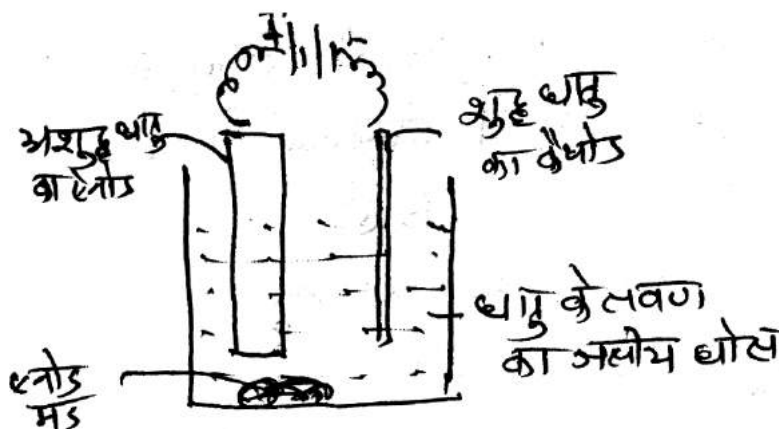 अशुद्ध धातु
का एनोड
शुद्ध धातु
का कैथोड
धातु के लवण
का जलीय घोल
एनोड
मड